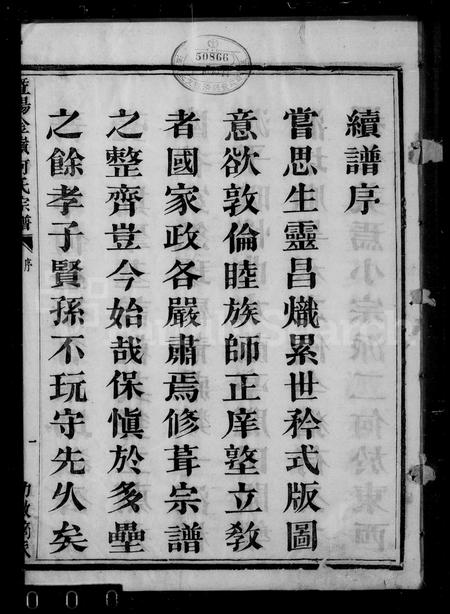 續譜序
嘗思生靈昌熾累世矜式版圖
意欲敦倫睦族師正庠塾立敎
者國家政各嚴肅焉修葺宗譜
之整齊豈今始哉保愼於多壘
之餘孝子賢孫不玩守先乆矣
氏宗譜
序
一
50866
000